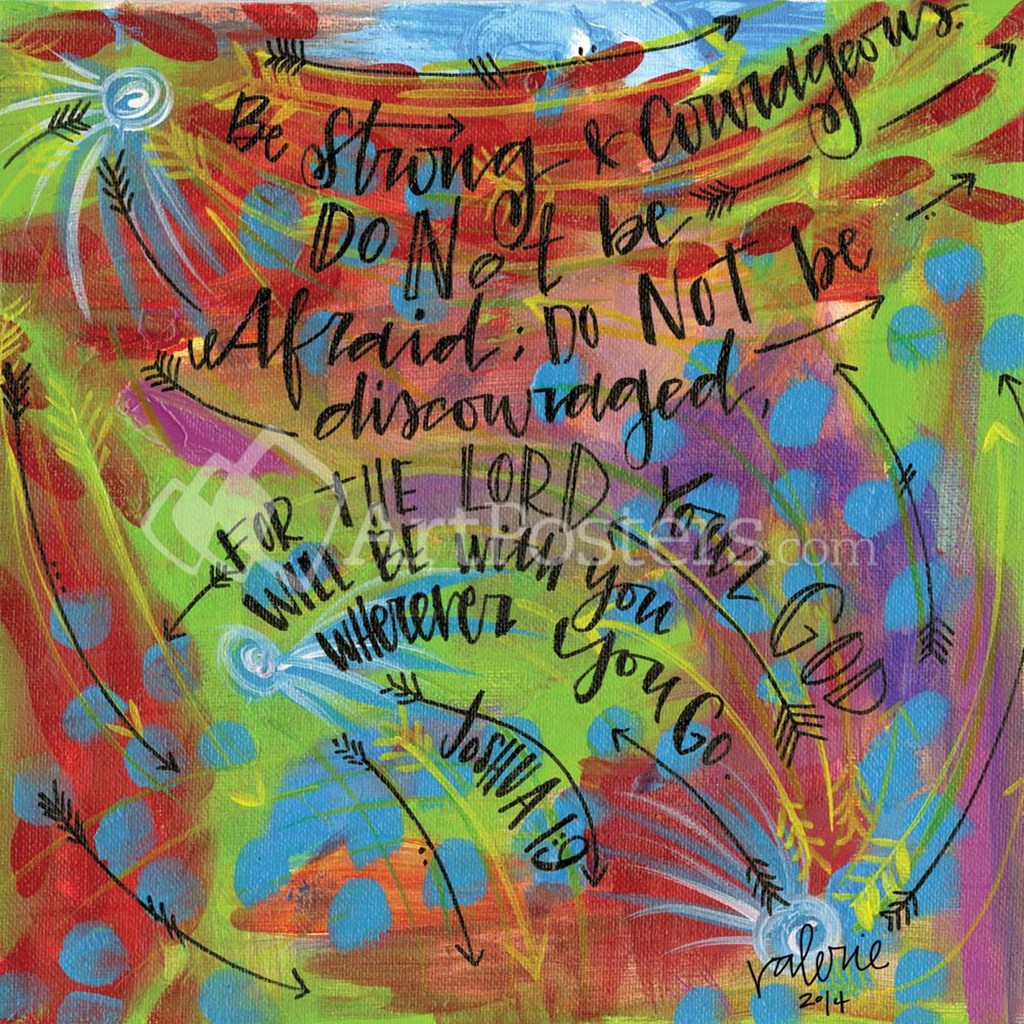 Be Strong & Courageous.
Do Not be
Afraid; Do Not be
discouraged,
FOR THE LORD YOUR GOD
WILL BE WITH you
WHEREVER you GO.
JOSHUA 1:9
ArtPosters.com
valerie
2014